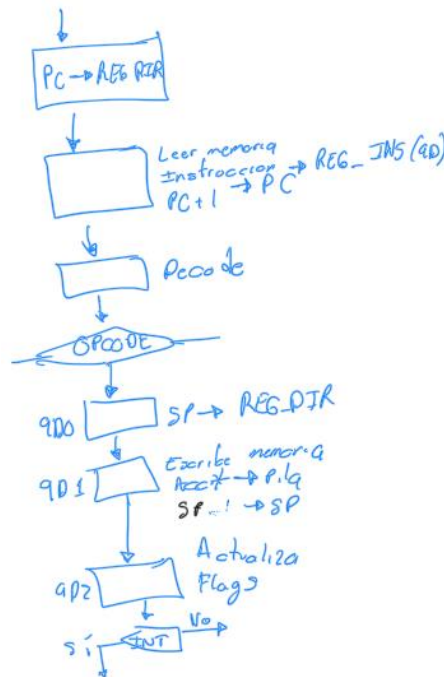 PC → REG DIR
Leer memoria
Instruccion → REG_INS (9D)
PC+1 → PC
Decode
OPCODE
9D0
SP → REG_DIR
9D1
Escribe memoria
→ Pila
SP-1 → SP
9D2
Actualiza
Flags
No
INT
Sí